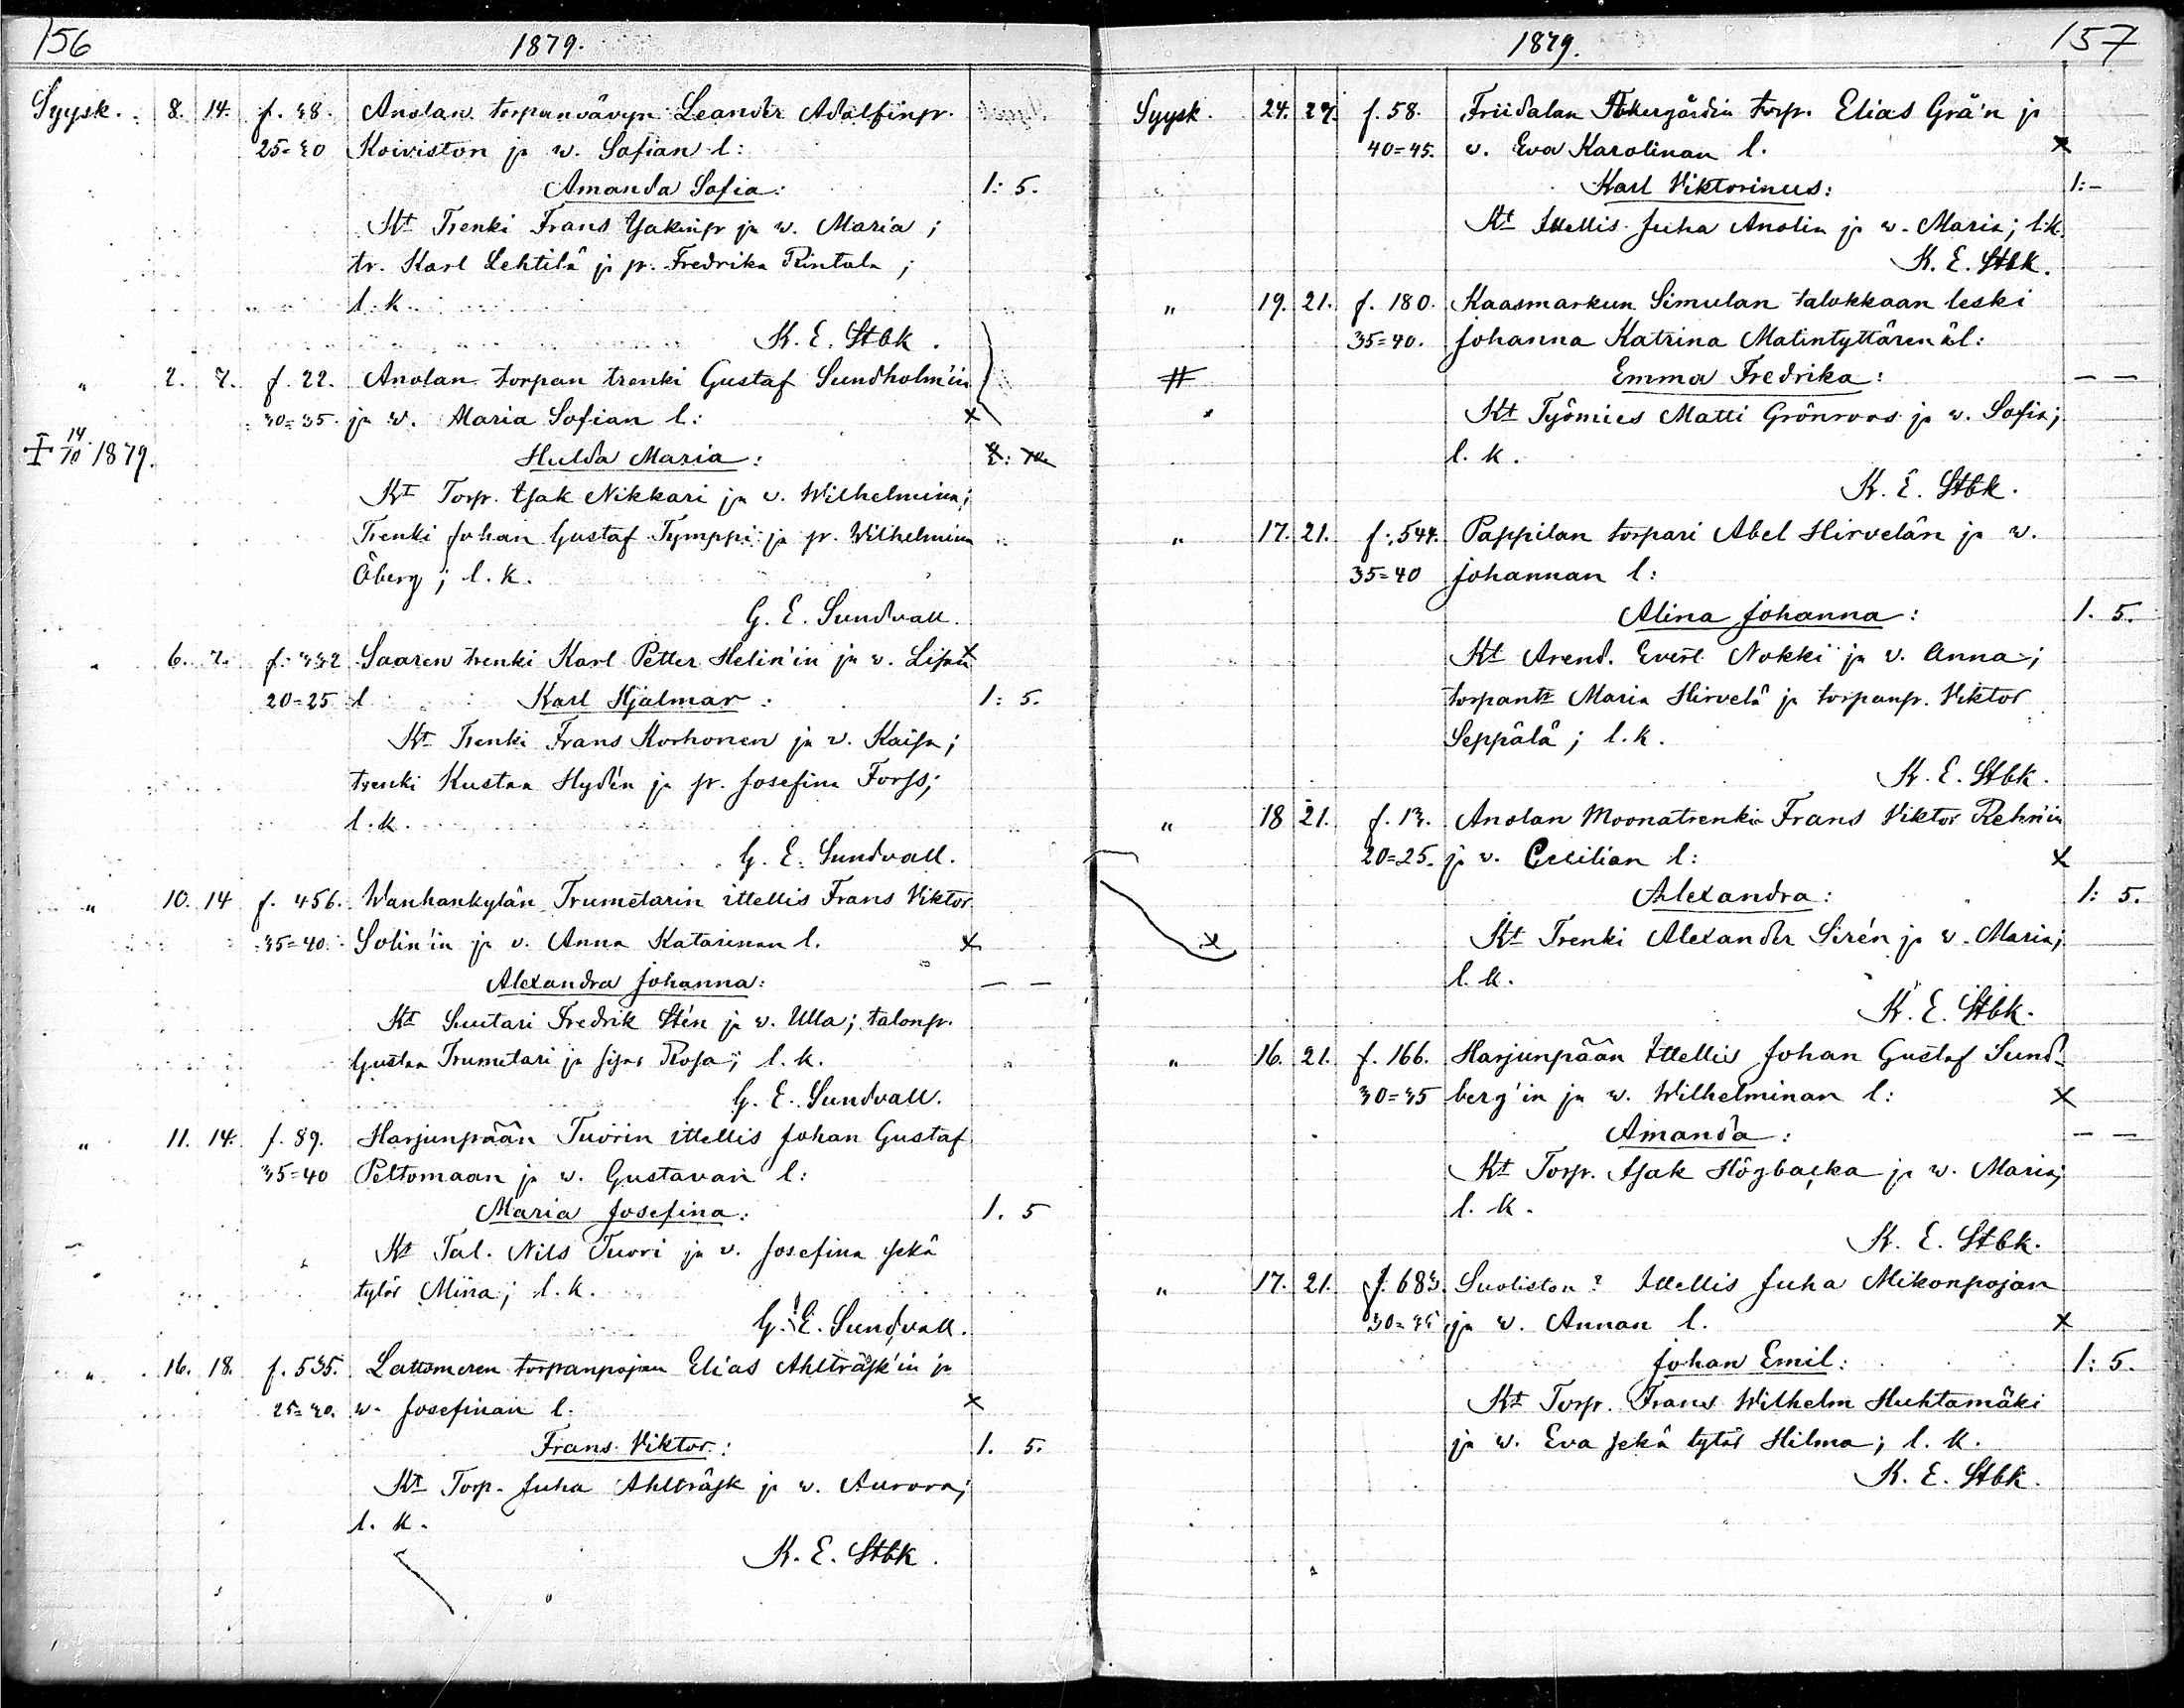 156 1879.
Syysk. 8. 14. f. 38. Anolan torpanvävyn Leander Adolfinpr.
25=30 Koiviston ja w. Sofian l:
Amanda Sofia: 1: 5.
Kt Trenki Frans Isakinpr ja w. Maria;
tr. Karl Lehtilä ja pr. Fredrika Rintala;
l. k.
K. E. Stbk.
" 2. 7. f. 22. Anolan torpan trenki Gustaf Sundholm'in
30=35 ja w. Maria Sofian l: x
I 14/10 1879. Hulda Maria:
Kt Torp. Isak Nikkari ja v. Wilhelmina;
Trenki Johan Gustaf Tymppi ja pr. Wilhelmina
Åberg; l. k.
G. E. Sundvall.
" 6. 7. f. 332 Saaren trenki Karl Petter Helin'in ja v. Lisan x
20=25 l Karl Hjalmar: 1: 5.
Kt Trenki Frans Korhonen ja v. Kaisa;
trenki Kustaa Hydén ja pr. Josefina Forss;
l. k.
G. E. Sundvall.
" 10. 14 f. 456. Wanhankylän Trumetarin ittellis Frans Viktor
35=40. Solin'in ja v. Anna Katarinan l. x
Alexandra Johanna: — —
Kt Suutari Fredrik Stén ja w. Ulla; talonpr.
Gustaa Trumetari ja sisar Rosa; l. k.
G. E. Sundvall.
" 11. 14. f. 89. Harjunpään Tuorin ittellis Johan Gustaf
35=40 Peltomaan ja w. Gustavan l:
Maria Josefina: 1. 5
Kt Tal. Nils Tuori ja v. Josefina sekä
tytär Miina; l. k.
G. E. Sundvall.
" 16. 18. f. 535. Lattomeren torpanpojan Elias Ahlträsk'in ja
25=30. w. Josefinan l. x
Frans Viktor: 1. 5.
Kt Torp. Juha Ahlträsk ja w. Aurora;
l. k.
K. E. Stbk.
1879. 157
Syysk. 24. 27. f. 58. Friidalan torp. Elias Grä'n ja
40=45. v. Eva Karolinan l. x
Karl Viktorinus: 1:-
Kt Ittellis Juha Anolin ja w. Maria; l. k.
K. E. Stbk.
" 19. 21. f. 180. Kaasmarkun Simulan talokkaan leski
35=40. Johanna Katrina Matintyttären äl:
# Emma Fredrika: — —
Kt Työmies Matti Grönroos ja w. Sofia;
l. k.
K. E. Stbk.
" 17. 21. f. 544. Pappilan torpari Abel Hirvelän ja w.
35=40 Johannan l:
Alina Johanna: 1. 5.
Kt Arend. Evert Nokki ja v. Anna;
torpantr Maria Hirvelä ja torpanpr. Viktor
Seppälä; l. k.
K. E. Stbk.
" 18 21. f. 13. Anolan Moonatrenki Frans Viktor Rehn'in
20=25. ja v. Cecilian l: x
Alexandra: 1: 5.
x Kt Trenki Alexander Sirén ja w. Maria;
l. k.
K. E. Stbk.
" 16. 21. f. 166. Harjunpään Ittellis Johan Gustaf Sund-
30=35 berg'in ja w. Wilhelminan l: x
Amanda: — —
Kt Torp. Isak Högbacka ja w. Maria;
l. k.
K. E. Stbk.
" 17. 21. f. 683. Suoliston? Ittellis Juha Mikonpojan
30=35 ja w. Annan l. x
Johan Emil: 1: 5.
Kt Torp. Frans Wilhelm Huhtamäki
ja w. Eva sekä tytär Hilma; l. k.
K. E. Stbk.